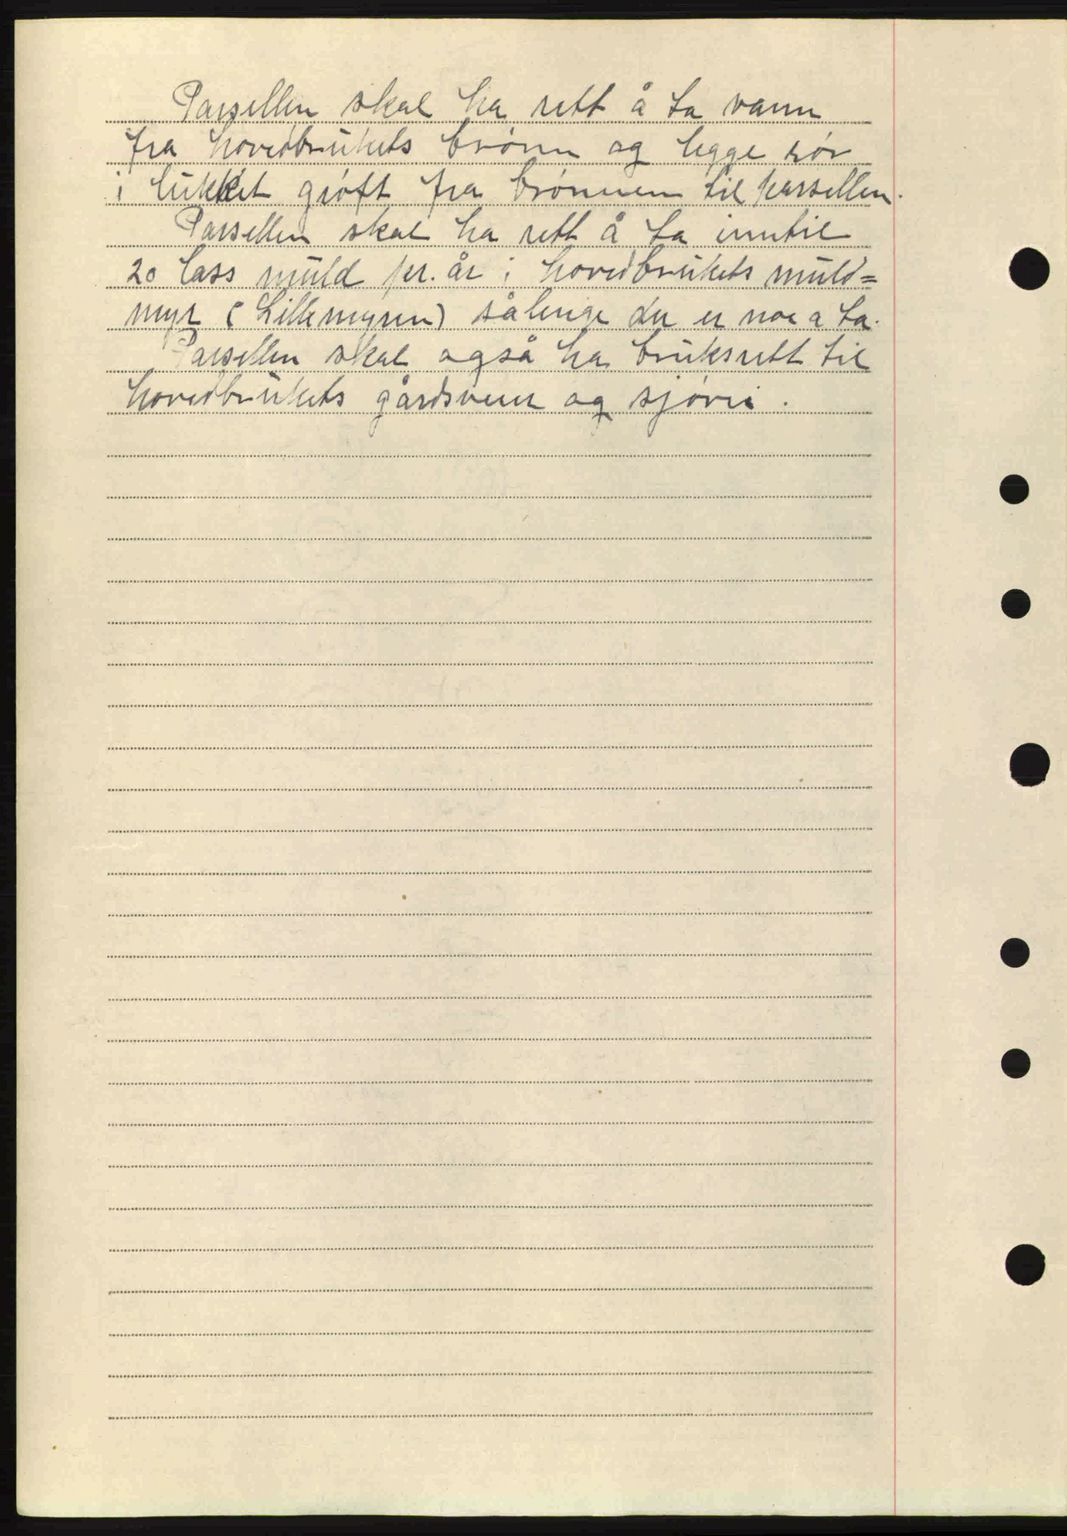 Parsellen skal ha rett å ta vann
fra hovedbrukets brønn og legge rør
i lukket grøft fra brønnen til parsellen.
Parsellen skal ha rett å ta inntil
20 lass muld pr. år i hovedbrukets muld=
myr (Lillemyren) sålenge der er noe å ta.
Parsellen skal også ha bruksrett til
hovedbrukets gårdsveier og sjøvei.